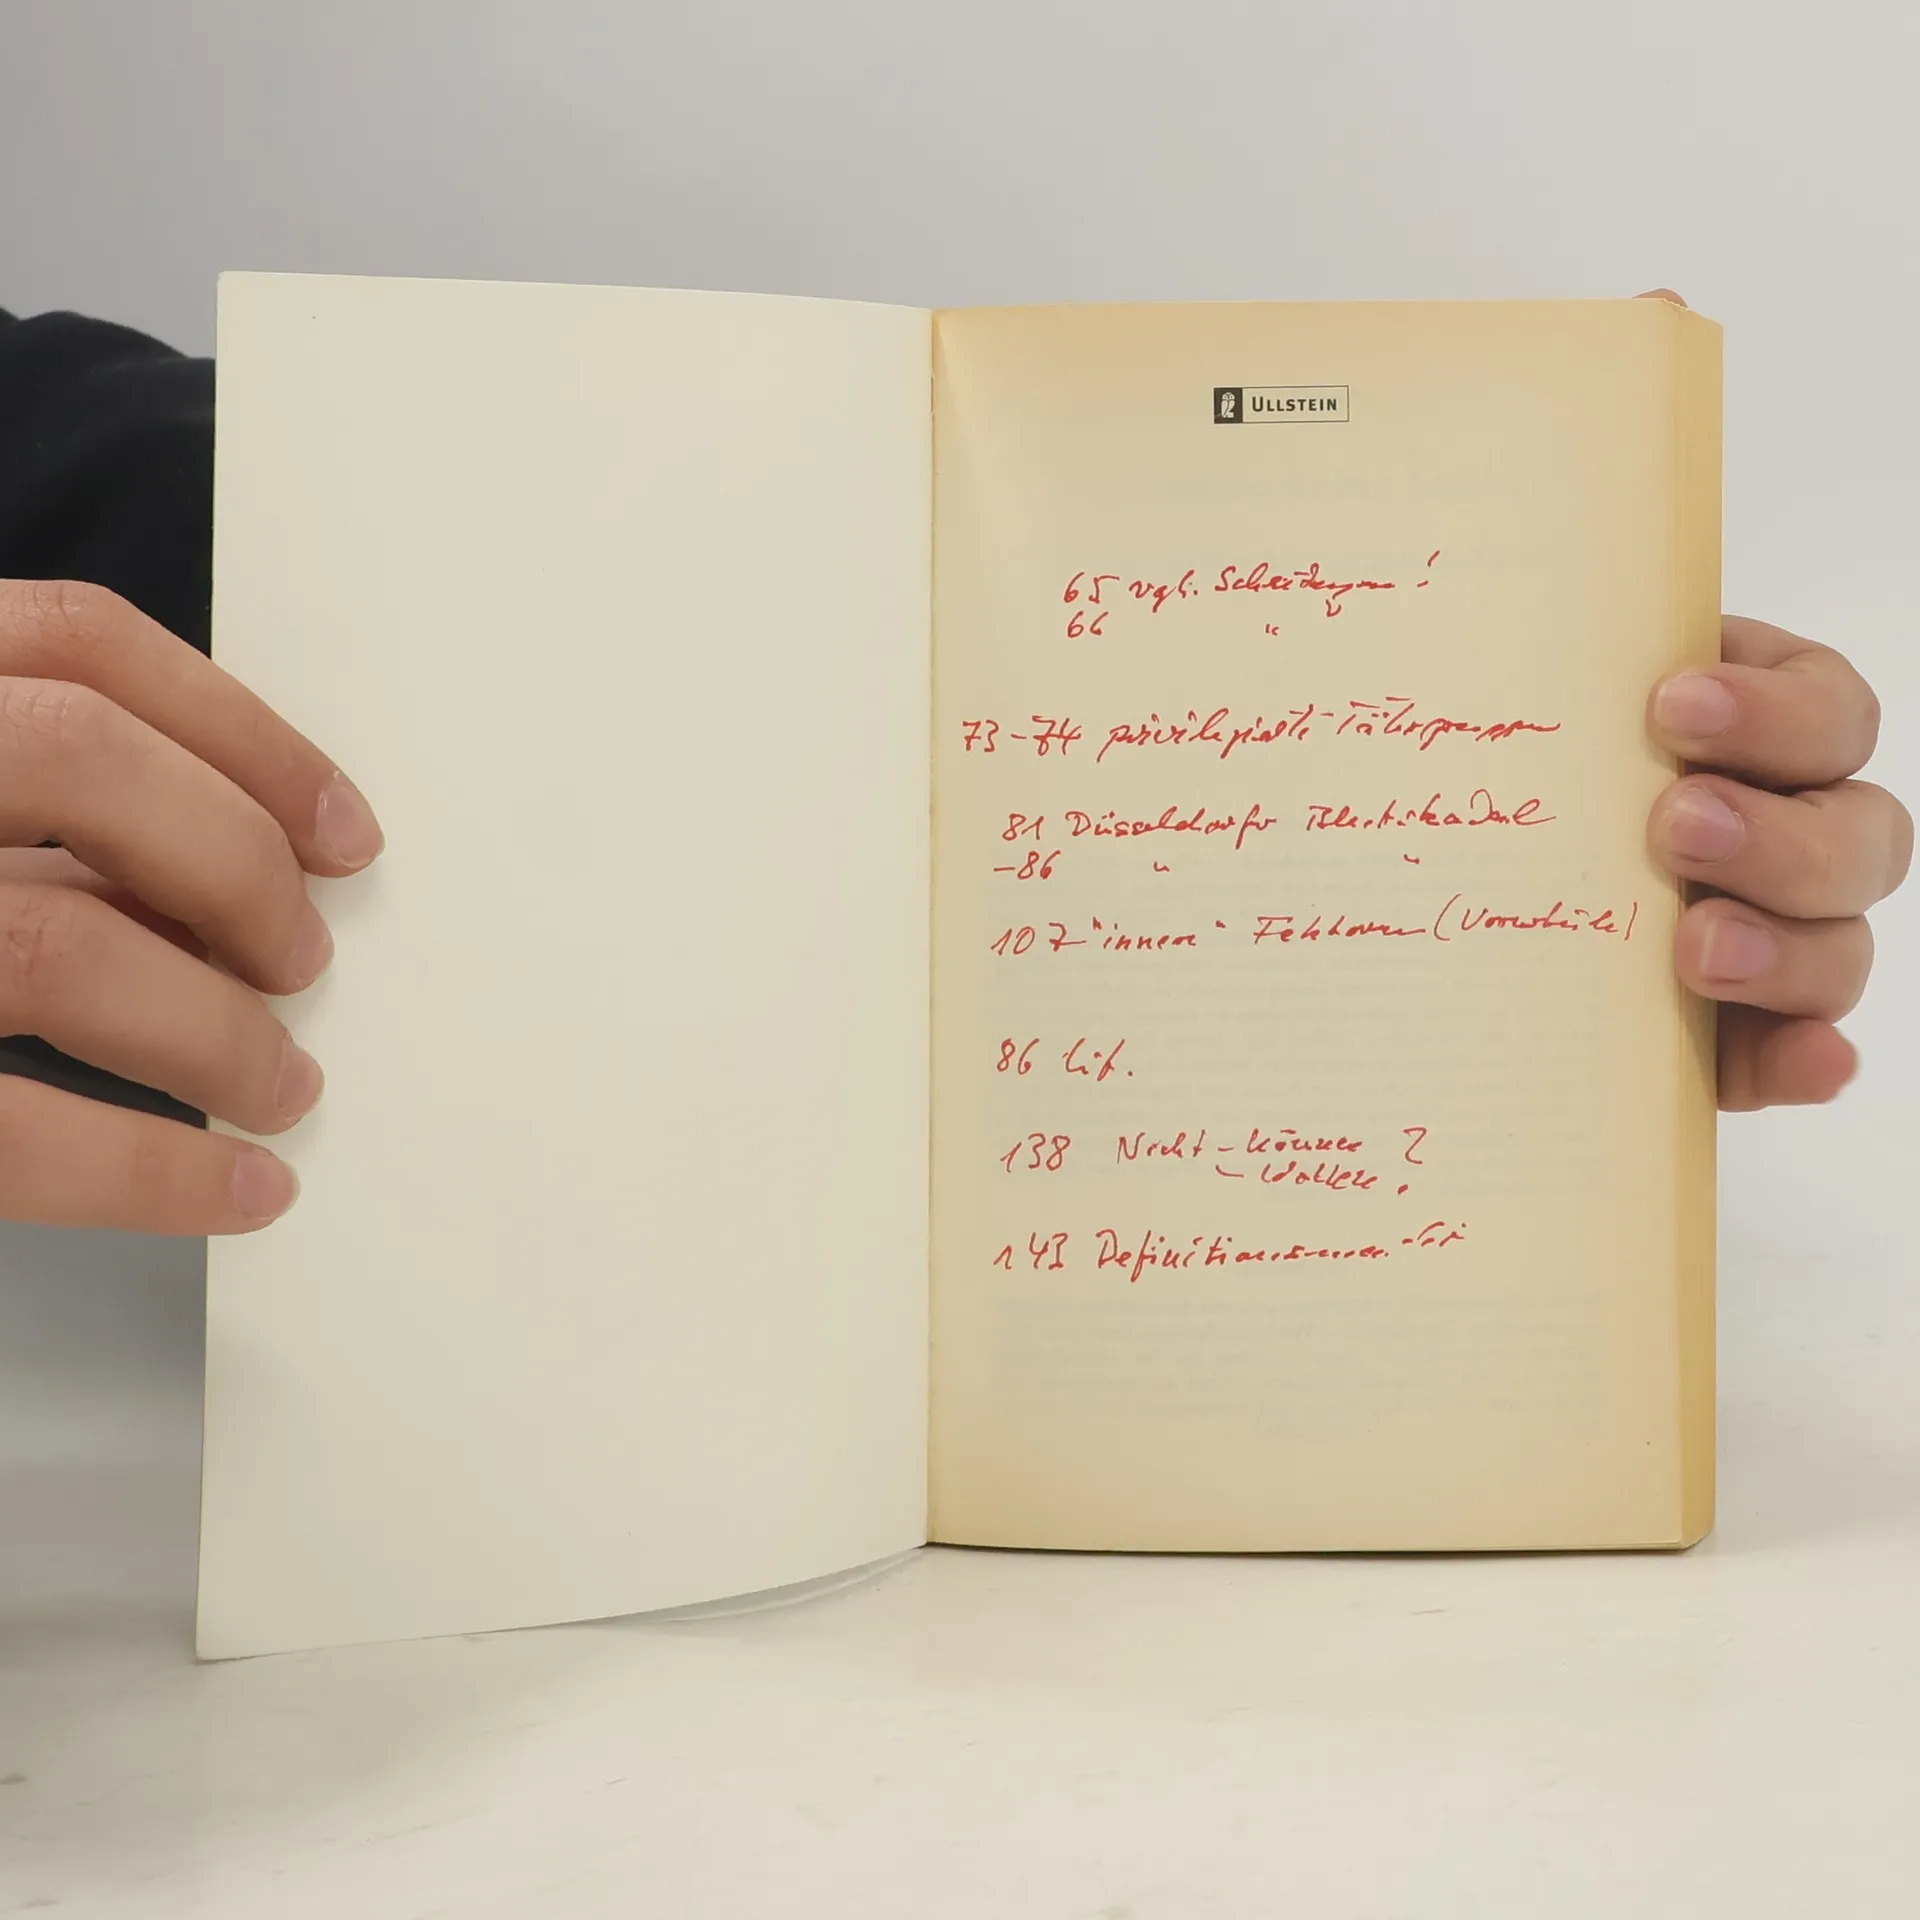 ULLSTEIN
65 vgl. Scheidungen !
66 "
73-74 privilegierte Tätergruppen
81 Düsseldorfer
-86 " "
107 "innere" Faktoren (Vorurteile)
86 Lit.
138 Nicht - können ?
- Wollen
143 Definitions